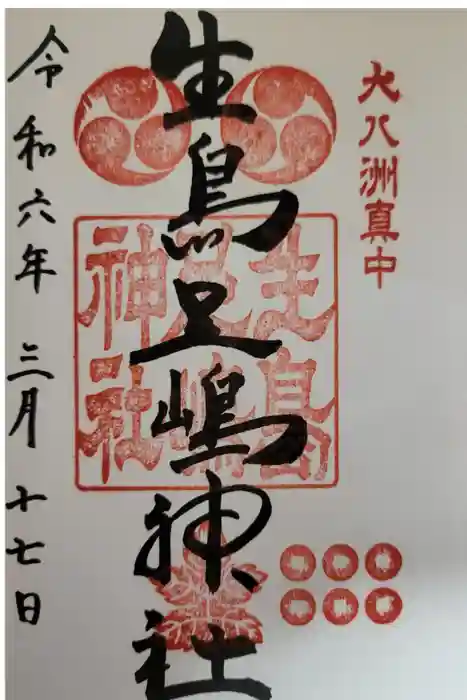 大八洲真中
生島足嶋神社
生島足嶋神社
令和六年 三月 十七日